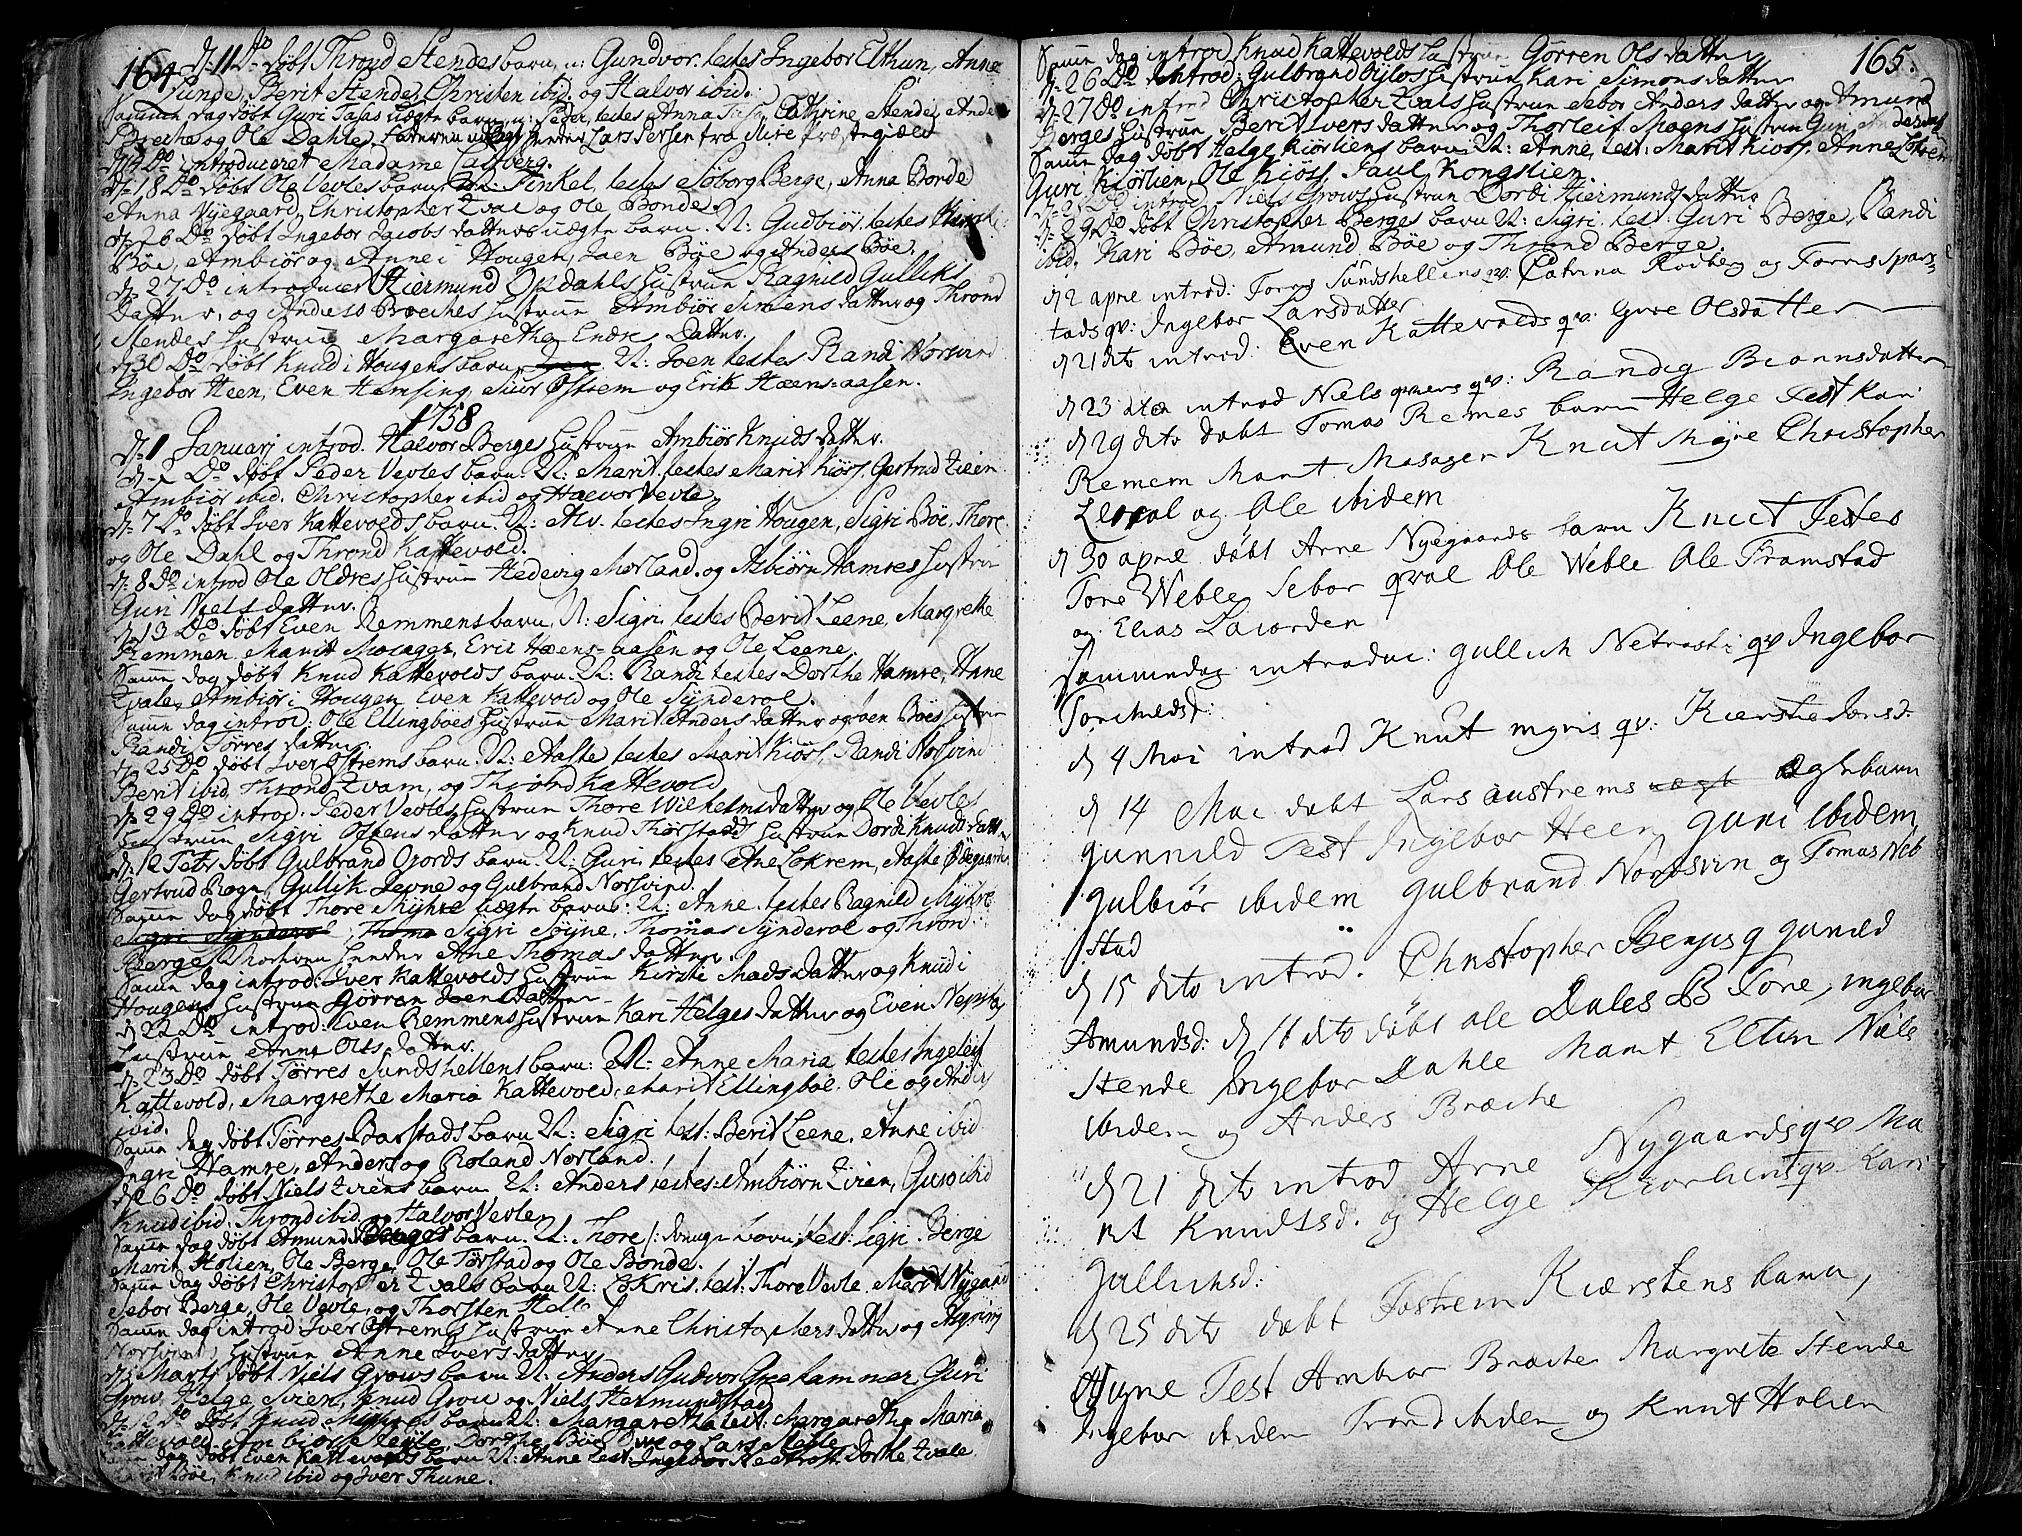 164
d. 11 Do døbt Thrond Stendes barn, n: Gundvor. testes Ingebor Elthun, Anne
Lunde, Berit Stende, Christen ibid. og Halvor ibid.
Samme dag døbt Guri Tasas uægte barn, n: Peder, testes Anna Tasa, Cathrine Stende, Anders
Breche og Ole Dahle, Lars Persen fra Præstegield
d. 14 Do introduceret Madame Calsberg.
d. 18 Do døbt Ole Vevles barn N: Finkel, testes Seborg Berge, Anna Bonde
Anna Nyegaard, Christopher Zval og Ole Bonde.
d. 26 Do døbt Ingebor Jacobs datters uægte barn. N: Gudbiør. testes
Bøe, Ambiør og Anne i Hougen, Joen Bøe og Anders Bøe.
d. 27 Do introducer Hiermund Opdahls hustrue Ragnild Gulliks
Datter, og Anders Breches hustrue Ambiør Simens datter og Thrond
Stendes hustrue Margaretha Endres Datter.
d. 30 Do døbt Knud i Hougens barn N: Joen testes Randi Norsvin
Ingebor Heen, Even Hemsing, Siur Østrem og Erik Hæens-aasen.
1758
d. 1 Januarj introd. Halvor Berges hustrue Ambiør Knuds datter.
d. Do døbt Peder Vevles barn. N: Marit. testes Marit Kiøs, Gertrud Zien
Ambiør ibid. Christopher ibid og Halvor Vevle.
d. 7 Do døbt Iver Kattevolds barn. N: Alv. testes Ingri Hougen, Sigri Bøe, Thore
og Ole Dahl og Thrond Kattevold.
d. 8 Do introd Ole Oldres hustrue Hedevig Morland. og Asbiørn Hamres hustrue
Guri Niels datter.
d. 13 Do døbt Even Remmens barn, N: Sigri, testes Berit Leene, Margrethe
Remmen, Marit Moragge, Eric Hæens-aasen og Ole Leene.
Samme dag døbt Knud Kattevolds barn. N: Randi testes Dorthe Hamre, Anne
Zvale, Ambiør i Hougen, Even Kattevold og Ole Synderol.
Samme dag introd: Ole Ellingbøes hustrue Marit Anders datter og Joen Bøes hustrue
Randi Tørres datter.
d. 25 Do døbt Iver Østrems barn. N: Aaste testes Marit Kiøs, Randi Norsvind
Berit ibid. Thrond Zvam, og Thrond Kattevold
d. 29 Do introd. Peder Vevles hustrue Thore Wilhelmsdatter og Ole Vevles
hustrue Sigri Ostens datter og Knud Thørstads hustrue Dordi Knuds datter
d. 12 Febr døbt Gulbrand Ojords barn. N: Guri, testes Ane Lokrem, Aaste Ødegaarden
Gertrud Rogn, Gullik Jevne og Gulbrand Norsvind.
Samme dag døbt Thore Myhre uægte barn: N: Anne. testes Ragnild Myhre
Sigri Søyne, Thomas Synderol og Thrond
Berge, Moderen hender Ane Thomas datter.
Samme dag introd: Iver Kattevolds hustrue Kirsti Madsdatter og Knud i
Hougens hustrue Gørron Joensdatter
d. 22 Do introd: Even Remmens hustrue Kari Helges datter og Even
hustrue Anne Ols datter.
d. 23 Do døbt Tørres Sundshellens barn: N: Anne Maria testes Ingeleif
Kattevold, Margrethe Maria Kattevold, Marit Ellingbøe. Ole og Anders
ibid.
Samme dag døbt Tørres Barstads barn N: Sigri test: Berit Leene, Anne ibid
Ingri Hamre, Anders og Roland Norland.
d. 26 Do døbt Niels Zirens barn. N: Anders testes: Ambiørn Ziren, Guro ibid
Knud ibid. Thrond ibid. og Halvor Vevle.
Samme dag døbt Amund Berges barn. N: Thore test: Sigri Berge
Marit Holien, Ole Berge, Ole Tørstad og Ole Bonde.
Samme dag døbt Christopher Zvals barn N: Lokris. test: Thore Vevle, Marit Nygaard
Sebor Berge, Ole Vevle, og Thorsten Helle
Samme dag introd: Iver Østrems hustrue Anne Christophers datter og Asgrim
Norsvins hustrue Anne Ivers datter
d. Martj døbt Niels Grows barn N: Anders Gudvor Grøehammer Guri
Grow, Helge Siren, Knud Grow og Niels Hermundstad
d. 12 Do døbt Knud Myhres barn N: Margaretha test: Margarethe Maria
Kattevold, Ambiør Steyle, Dorthe Bøe og Lars Steile
Samme dag døbt Even Kattevolds barn N: Anne test: Ingebor Dorthe Zvale
Marit Bøe, Knud ibid og Iver Thune.
165.
Samme dag introd Knud Kattevolds hustrue Gørren Ols datter
d. 26 Do introd: Gulbrand Øylos hustrue Kari Simonsdatter
d. 27 Do introd Christopher Zvals hustrue Sebor Anders datter og Amund
Berges hustrue Berit Iversdatter og Thorleif Moens hustrue Guri
Samme dag døbt Helge Kiørliens barn N: Anne, test: Marit Kiøs. Anne
Guri Kiørlien, Ole Kiøs, Paul Kongslien.
d. introd Niels Grows hustrue Dordi Hiermunds datter
d. 29 Do døbt Christopher Berges barn N: Sigri. test: Guri Berge, Randi
ibid. Kari Bøe, Amund Bøe og Thrond Berge.
d 2 apre introd: Torns Sundshellens qv: Catrina Rodberg og Torns Spar
tads qv: Ingebor Larsdatter
d 21 dito introd: Even Kattevolds qv: Gure Olsdatter
d 23 dito introd Niels qværns qv: Randig Biørnsdatter
d 29 dito døbt Tomas Remes barn Helge Test Kari
Remem Marit Mosagen Knut Myre Christopher
og Ole ibidem
d 30 apre døbt Arne Nyegaards barn Knut Testes
Tore Weble Sebor qval Ole Weble Ole Framstad
og Elias
Sammedag introduc: Gullich Netrost: qv Ingebor
Torchieldsd:
d 4 Mai introd Knut myris qv: Kierstie Jensd.
d 14 Mai døbt Lars austrems uægtebarn
Gunnild Test Ingebor Heen Guri ibidem
Gulbiør ibidem Gulbrand Nordsvin og Tomas Neb
stad
d 15 dito introd. Christopher Berges q Gunild
Amundsd: d 16 dito døbt Ole Dales B Tore, ingebor
Stende Ingebor Dahle Marit Eltun Niels
ibidem og Anders Bræche
d 21 dito introd Arne Nygaards qv Ma
rit Knudtsd. og Helge Kiørliens qv. Kari
Gullichsd:
d 25 dito døbt Tostrem Kierstens barn,
Test Ambiør Bræche Margrete Stende
Ingebor ibidem Trond ibidem og Knut Holien